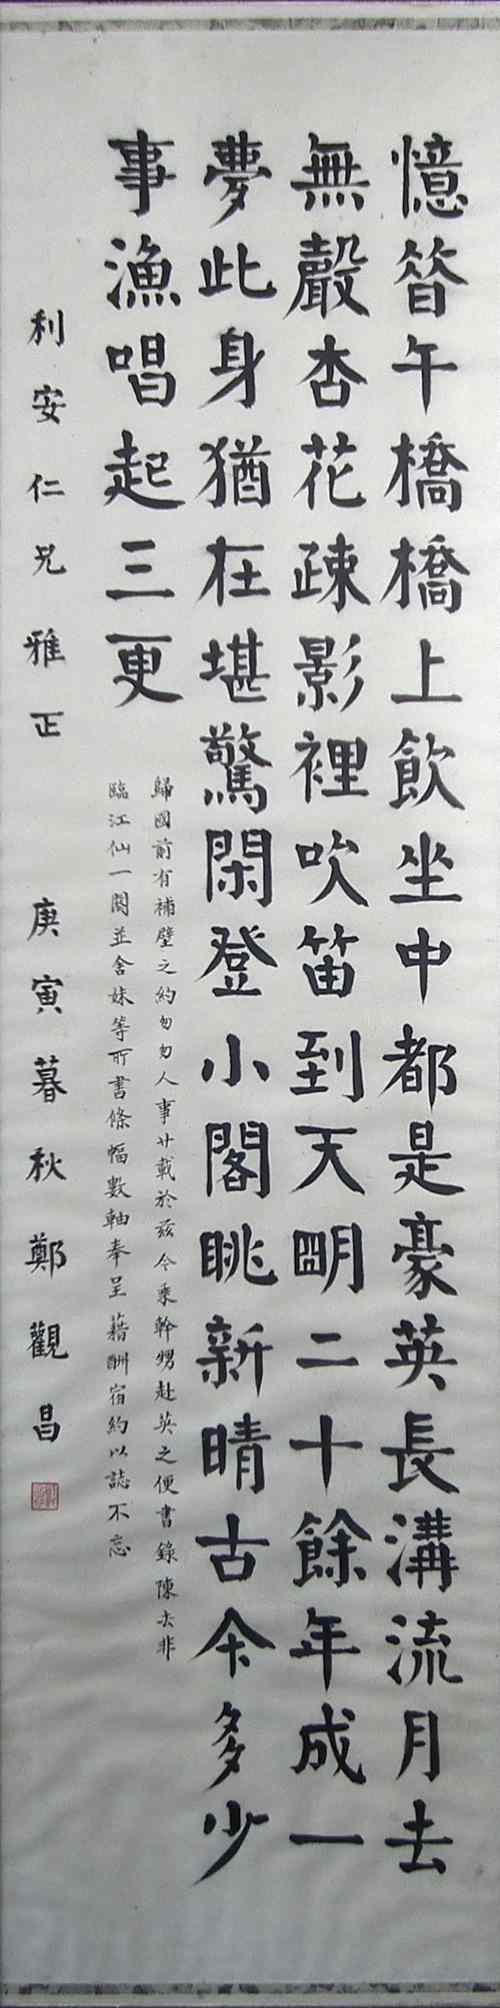 憶昝午橋橋上飲坐中都是豪英長溝流月去
無聲杏花疎影裡吹笛到天明二十餘年成一
夢此身猶在堪驚閑登小閣眺新晴古今多少
事漁唱起三更
歸國前有補壁之約匆匆人事廿載於茲今乘幹甥赴英之便書錄陳去非
臨江仙一闋並舍妹等所書條幅數軸奉呈藉酬宿約以誌不忘
利安仁兄雅正
庚寅暮秋鄭觀昌